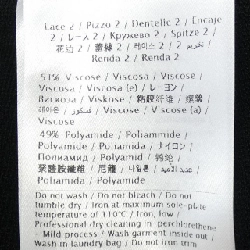 Lace 2 / Pizzo 2 / Dentelle 2 / Encaje
2 / レース 2 / Кружево 2 / Spitze 2 /
花边 2 / 蕾絲 2 / 레이스 2 / تخريم 2 /
Renda 2 / Renda 2
51% Viscose / Viscosa / Viscose /
Viscosa / Viscosa (e) / レーヨン /
Вискоза / Viskose /
/ Viscose / Viscose (a) /
Viscose
49% Polyamide / Poliammide /
Polyamide / Poliamida / ナイロン /
Полиамид / Polyamid /
聚醯胺纖維 /
Poliamida / Poliamida
Do not wash / Do not bleach / Do not
tumble dry / Iron at max sole-plate
temperature of 110°C / Iron, low /
Professional dry cleaning in perclorethene
- Mild process / Wash garment inside out /
Wash in laundry bag / Do not iron trim